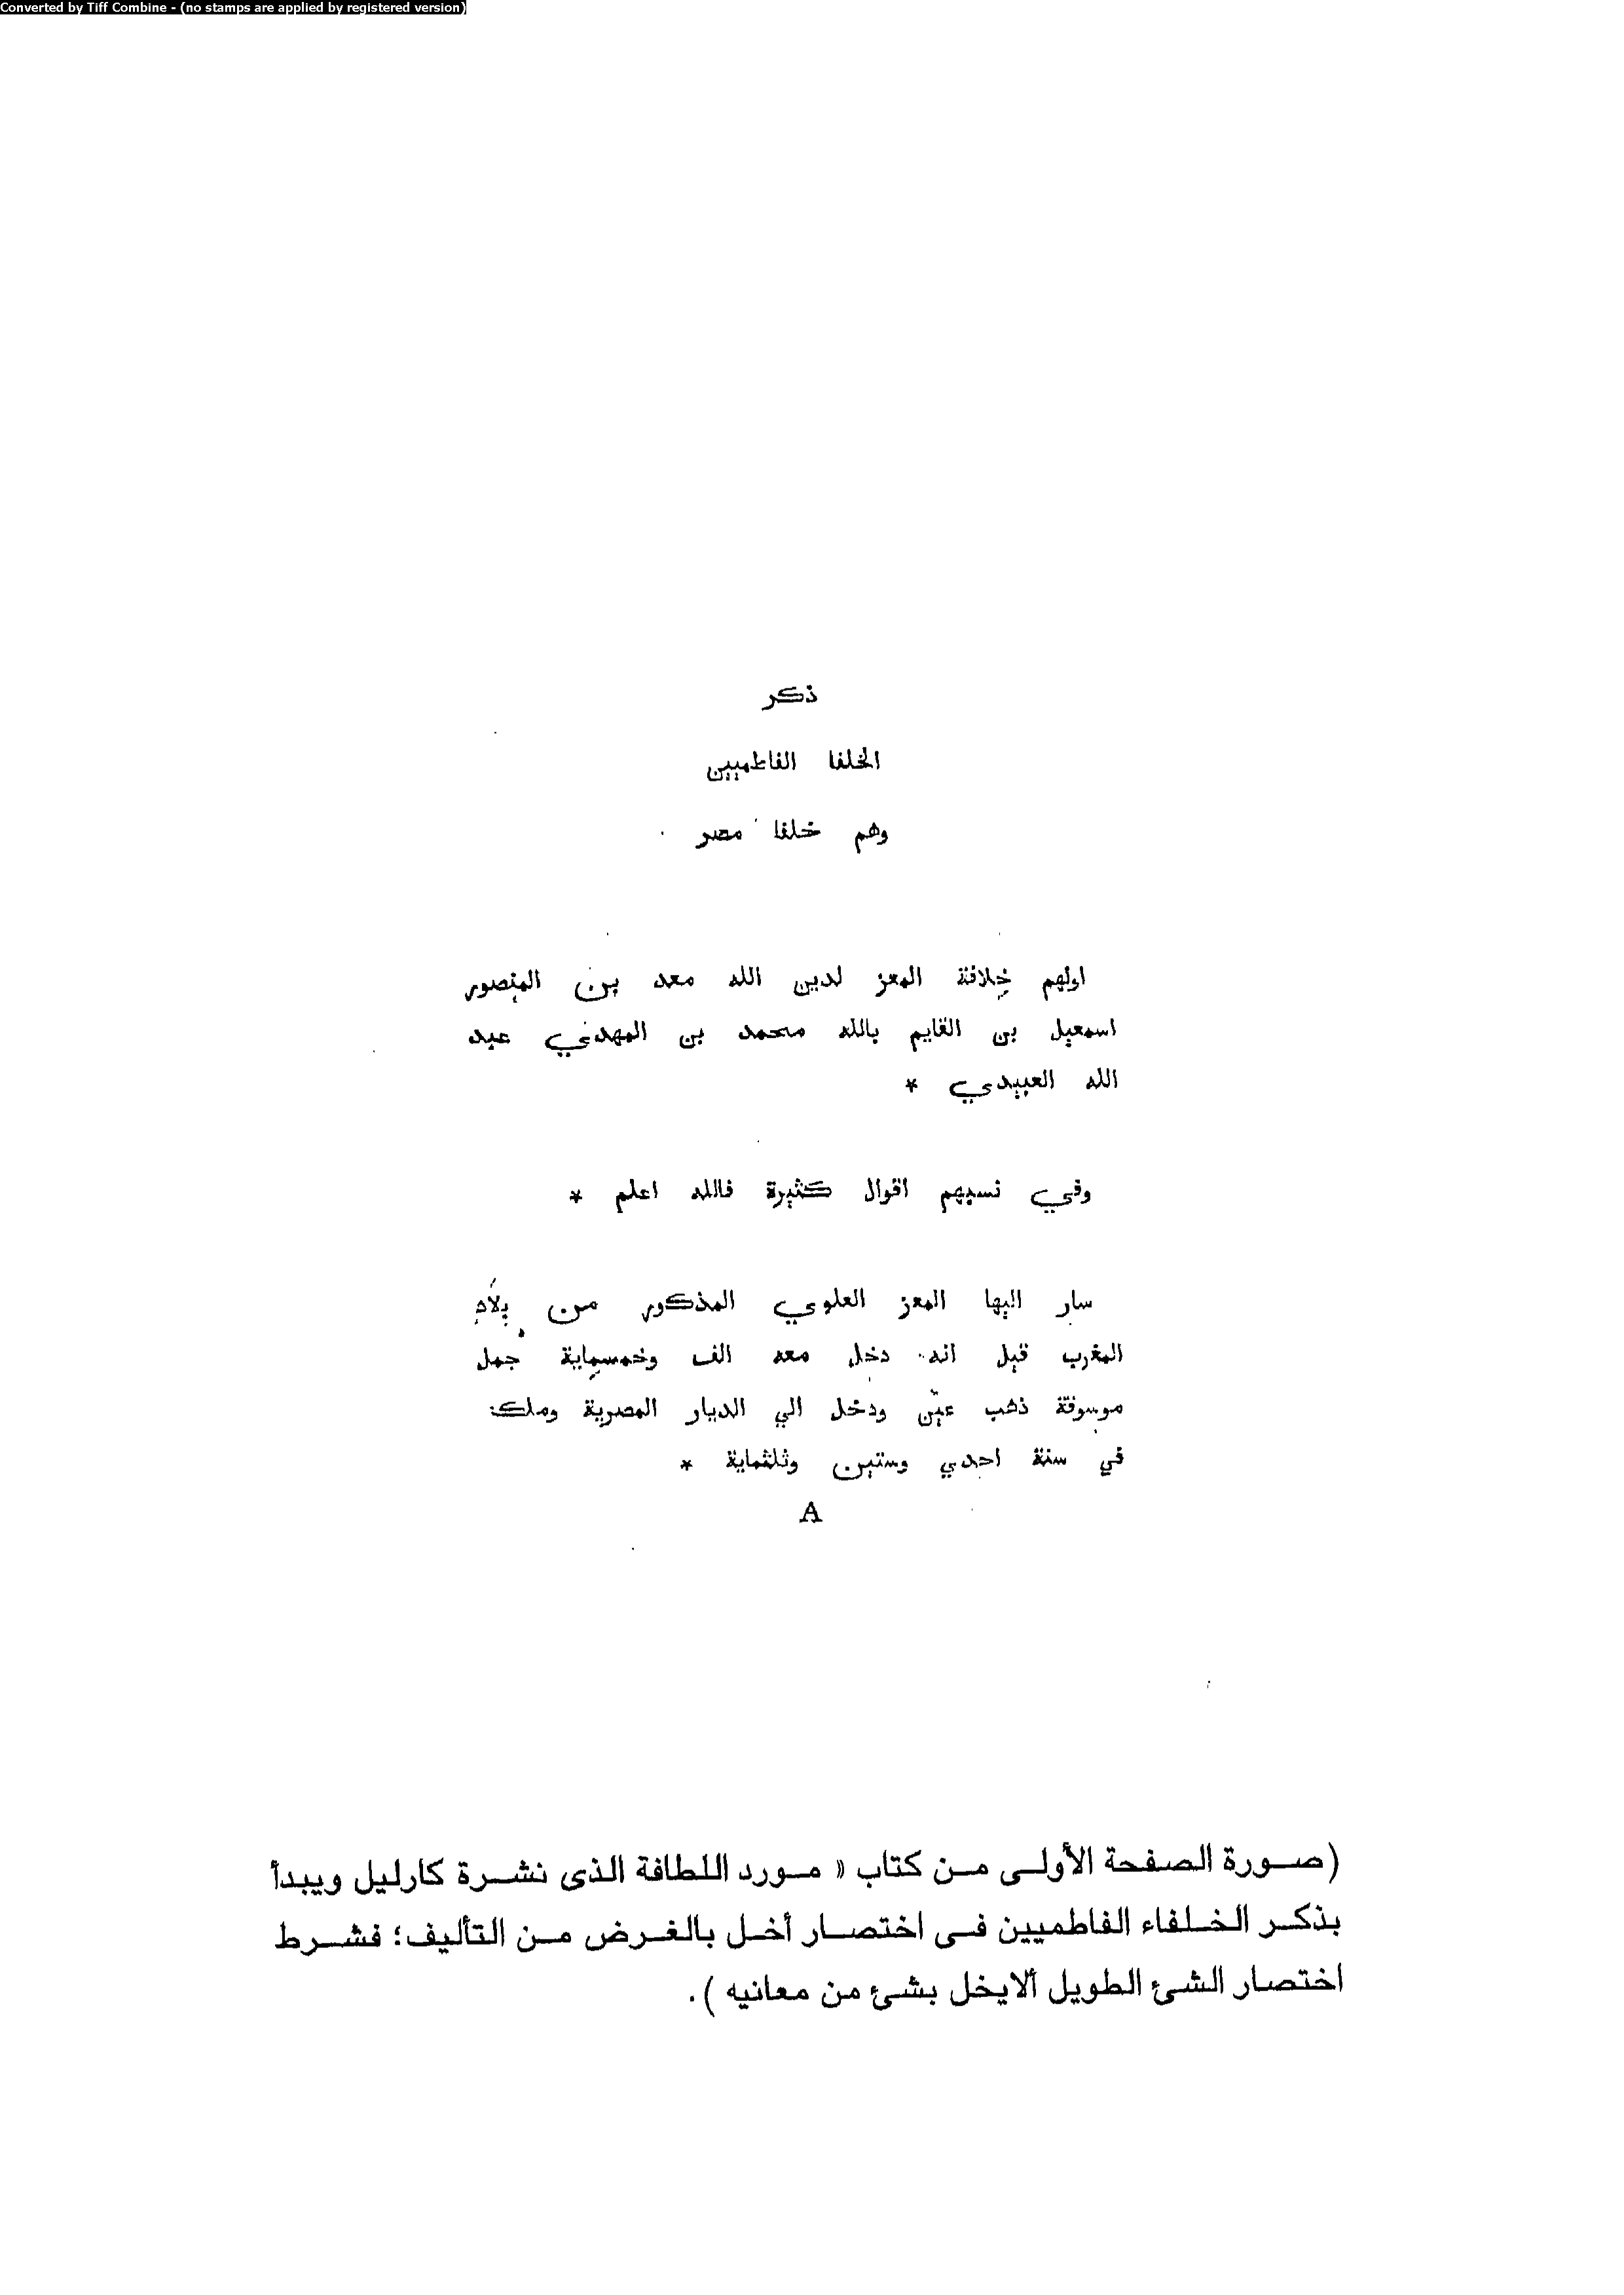 Converted by Tiff Combine - (no stamps are applied by registered version)
ذكر
الخلفا الفاطميين
وهم خلفا مصر
اولهم خلافة المعز لدين الله معد بن المنصور
اسمعيل بن القايم بالله محمد بن المهدي عبد
الله العبيدي *
وفي نسبهم اقوال كثيرة فالله اعلم *
سار اليها المعز العلوي المذكور من بلاد
المغرب قيل انه دخل معه الف وخمسماية جمل
موسوقة ذهب عين ودخل الي الديار المصرية وملك
في سنة احدي وستين وثلثماية *
A
(صورة الصفحة الأولى من كتاب « مورد اللطافة الذى نشرة كارليل ويبدأ
بذكر الخلفاء الفاطميين فى اختصار أخل بالغرض من التأليف؛ فشرط
اختصار الشئ الطويل ألايخل بشئ من معانيه ).